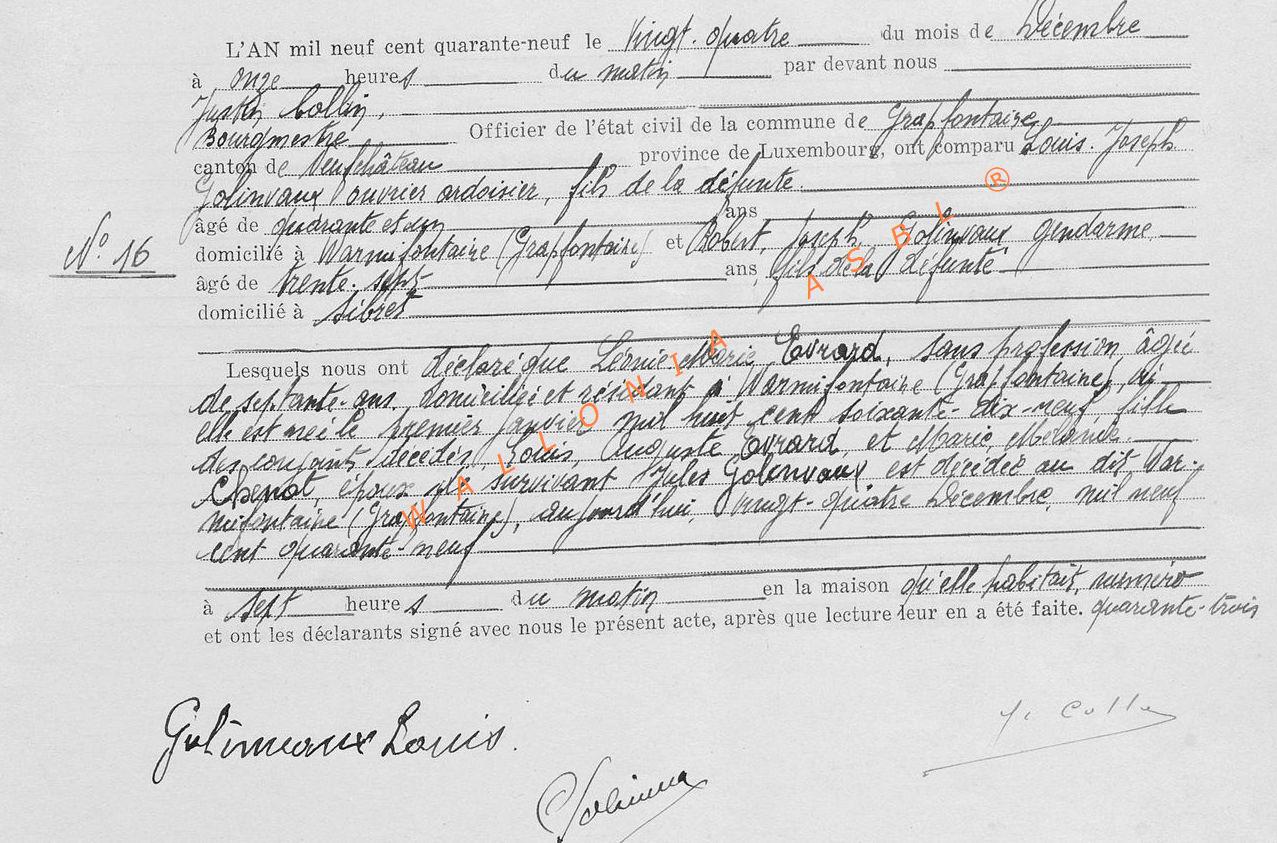 L'AN mil neuf cent quarante-neuf le Vingt-quatre du mois de Décembre
à onze heures du matin par devant nous
Justin Collin,
Bourgmestre Officier de l'état civil de la commune de Grapfontaine
canton de Neufchâteau province de Luxembourg, ont comparu Louis. Joseph
Golinvaux ouvrier ardoisier, fils de la défunte.
âgé de quarante et un ans
N° 16
domicilié à Warmifontaine (Grapfontaine) et Robert, Joseph, Golinvaux gendarme
âgé de trente-sept ans, fils de la défunte
domicilié à Sibret
Lesquels nous ont déclaré que Marie Evrard, sans profession, âgée
de septante-ans, domiciliée et résidant à Warmifontaine (Grapfontaine)
elle est née le premier Janvier mil huit cent soixante-dix-neuf fille
des conjoints décédés, Louis, Auguste, Evrard, et Marie,
Chenot, époux survivant Jules Golinvaux est décédée au dit War-
mifontaine (Grapfontaine), aujourd'hui, vingt-quatre Décembre, mil neuf
cent quarante-neuf
à sept heures du matin en la maison qu'elle habitait, numéro
et ont les déclarants signé avec nous le présent acte, après que lecture leur en a été faite. quarante-trois
WALLONIA ASBL ®
Golinvaux Louis.
J. Collin